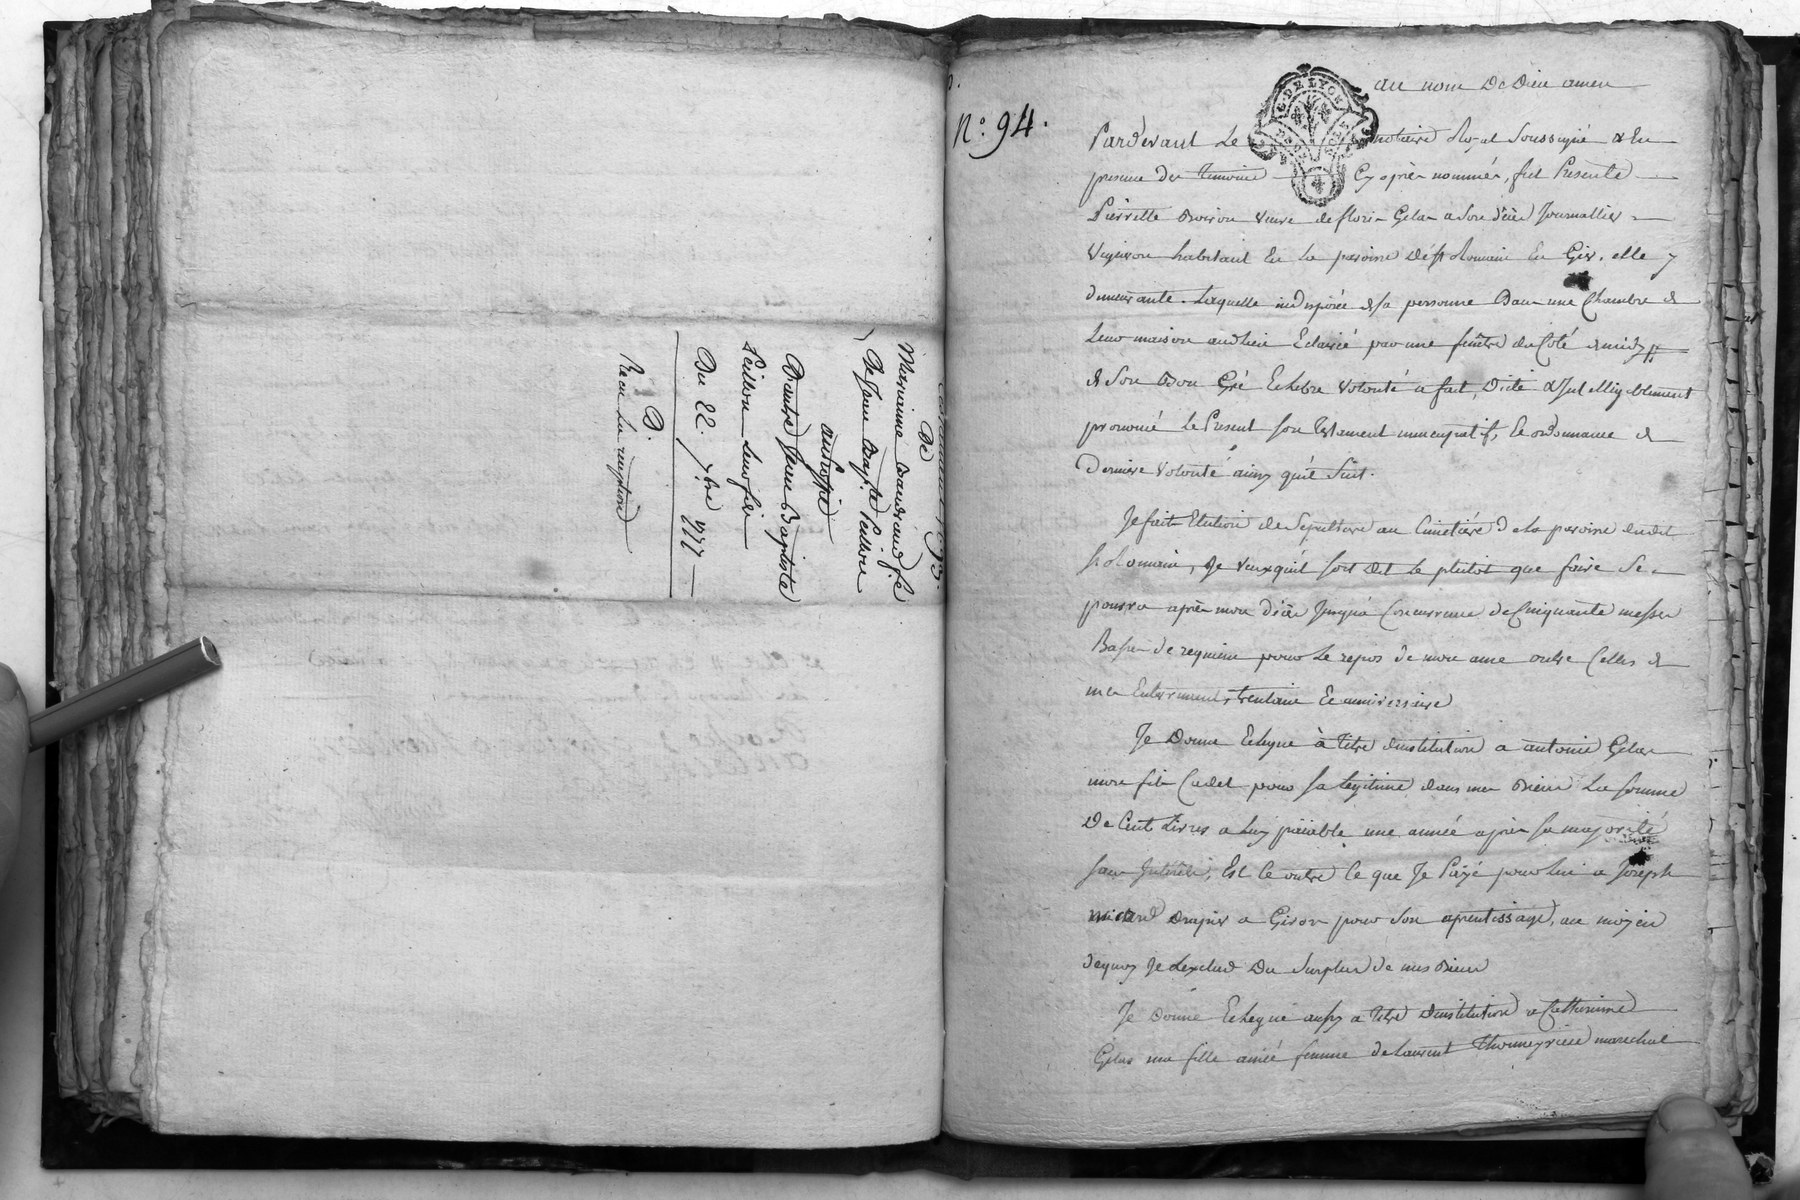 De
Marianne
De Jean Bapte Pelline
au profit
Dautre Jean Baptiste
Pelline leur fils
Du 22. 7bre 1777
D.
Recu la
N.o 94.
G. DE LYON
au nom De Dieu amen
Pardevant Le notaire Royal Soussigné & En
presence des Temoins Cy après nommés, fut Presente
Pierrette veuve de fleurie Gelas a son décès Journallier
Vigneron habitant En la paroisse de st Romain En Gier. elle y
demeurante. Laquelle indisposée de sa personne Dans une Chambre de
Leur maison audit lieu Eclairée par une fenêtre du Coté de midy
de Son Bon Gré Et libre volonté a fait, Dicté & Intelligiblement
prononcé Le Present son testament nuncupatif, Et ordonnance de
Derniere volonté ainsy qu'il Suit.
Je fais Election de Sepulture au Cimetière de la paroisse dudit
st Romain, Je veux qu'il soit Dit le plutôt que faire Se
pourra après mon décès Jusqu'a Concurrence de Cinquante messes
Basses de requiem pour Le repos de mon ame outre Celles de
mes Enterrement, trentaine Et anniversaire
Je Donne Et legue à titre d'institution a antoine Gelas
mon fils Cadet pour sa legitime dans mes Biens La somme
De Cent Livres a Luy païable une année après sa majorité
sans Intérêts, Et Ce outre Ce que Je Païé pour lui a Joseph
drapier a Givor pour son aprentissage, au moyen
dequoy Je L'exclud Du Surplus de mes Biens
Je donne Et legue aussy a titre d'institution a Catherinne
Gelas ma fille ainée femme de Laurent marechal